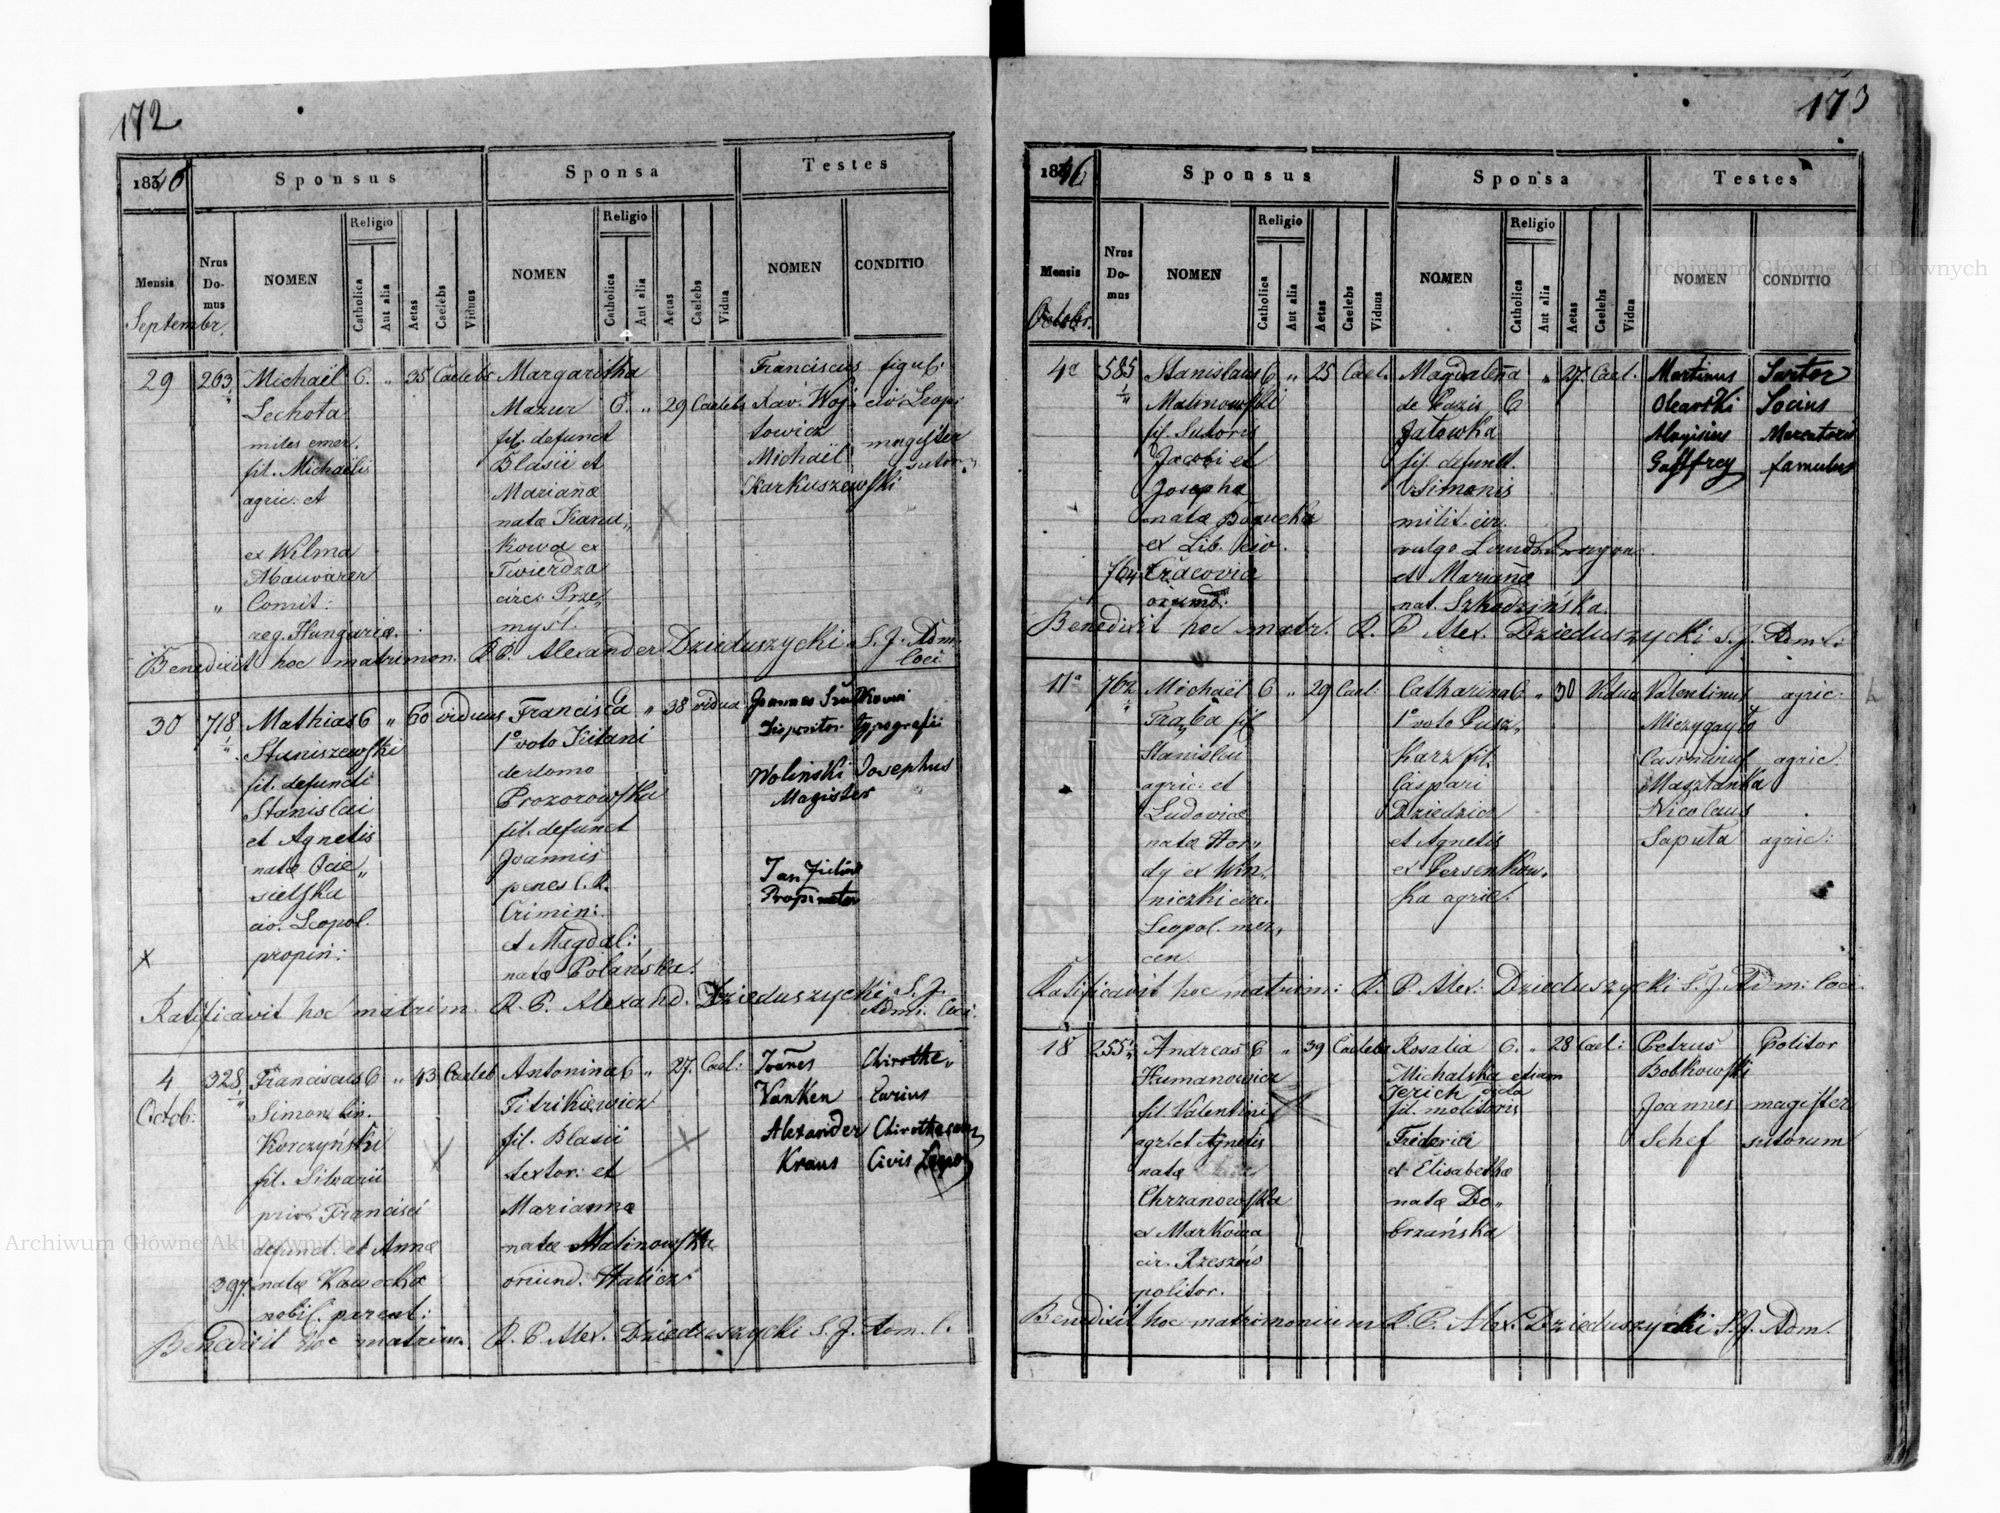 172
1846 Sponsus Sponsa Testes
Mensis Septembr. Nrus Domus NOMEN Religio Catholica Aut alia Aetas Caelebs Viduus NOMEN Religio Catholica Aut alia Aetas Caelebs Vidua NOMEN CONDITIO
29 263 Michaël C. „ 35 Caelebs Margaritha Franciscus figul:
Lechota Mazur C. „ 29 Caelebs Xav. Woj- civ. Leop:
miles emer. fil. defunct towicz magister
fil. Michaëlis Blasii et Michaël sutor:
agric: et Marianæ Skarkuszewski
natæ Kanu„
ex Wilma kowa ex
Abauvárer Twierdza
„ Comit: circ: Prze„
reg. Hungariæ. myśl.
Benedixit hoc matrimon. R. P. Alexander Dzieduszycki S. J. Adm. loci
30 718 Mathias C „ 60 viduus Francisca C „ 38 vidua Joannes
Staniszewski 1º voto Kitani Dispositor typografii
fil. defuncti de domo Wolinski Josephus
Stanislai Prozorowska Magister
et Agnetis fil. defunct
natæ Ocie„ Joannis Jan
sielska penes C. R. Propinator
civ. Leopol. Crimin:
propin: et Magdal:
x natæ Polańska.
Ratificavit hoc matrim. R. P. Alexand. Dzieduszycki S. J. Adm. loci.
4 328 Franciscus C. „ 43 Caeleb Antonina C „ 27. Cael: Joañes Chirothe„
Octob: Simon bin. Titrikiewicz Vanken carius
Korczyński fil. Blasii Alexander
fil. Silvarii textor: et Kraus Civis
prius Francisci Marianna
defunct. et Annæ natæ Malinowska
397. natæ Kawecka oriund. Halicz:
nobil. parent:
Benedixit hoc matrim. R. P. Alex. Dzieduszycki S. J. Adm. l.
173
1846 Sponsus Sponsa Testes
Mensis Octobr. Nrus Domus NOMEN Religio Catholica Aut alia Aetas Caelebs Viduus NOMEN Religio Catholica Aut alia Aetas Caelebs Vidua NOMEN CONDITIO
4a 585 Stanislaus C „ 25 Cael. Magdalena „ 27. Cael. Martinus Sartor
Malinowski de Pazis C Olearski Socius
fil. Sutoris Jatowka Aloyisius Mercatoris
Jacobi et fil. defunct. Gaffrey famulus
Josepha Simonis
natæ milit. cir.
ex Lib. civ. vulgo
764 Cracovia et Marianæ
oriund: nat. Szkodzińska
Benedixit hoc matr. R. P. Alex. Dzieduszycki S. J. Adm l:
11a 762 Michaël C „ 29 Cael: Catharina C „ 30 Vidua Valentinus agric:
Trąba fil 1º voto Pusz„ Miczygayło
Stanislai karz fil. Casimirus agric:
agric: et Caspari Masztanka
Ludovicæ Dziedzic Nicolaus
natæ Hor„ et Agnetis Saputa agric:
dy ex Win„ ex Persenkow„
niczki circ. ka agric.
Leopol. mer„
cen
Ratificavit hoc matrim: R. P. Alex: Dzieduszycki S. J. Adm: loci.
18 255 Andreas C „ 39 Caelebs Rosalia C. „ 28 Cael: Petrus Politor
Humanowicz Michalska etiam Bobkowski
fil. Valentini Jerich dicta Joannes magister
agr: et Agnetis fil. molitoris Schef sutorum
natæ Friderici
Chrzanowska et Elisabethæ
ex Markowa natæ Do„
cir. Rzeszów brzańska
politor.
Benedixit hoc matrimonium R. P. Alex. Dzieduszycki S. J. Adm.
Archiwum Główne Akt Dawnych
Archiwum Główne Akt Dawnych